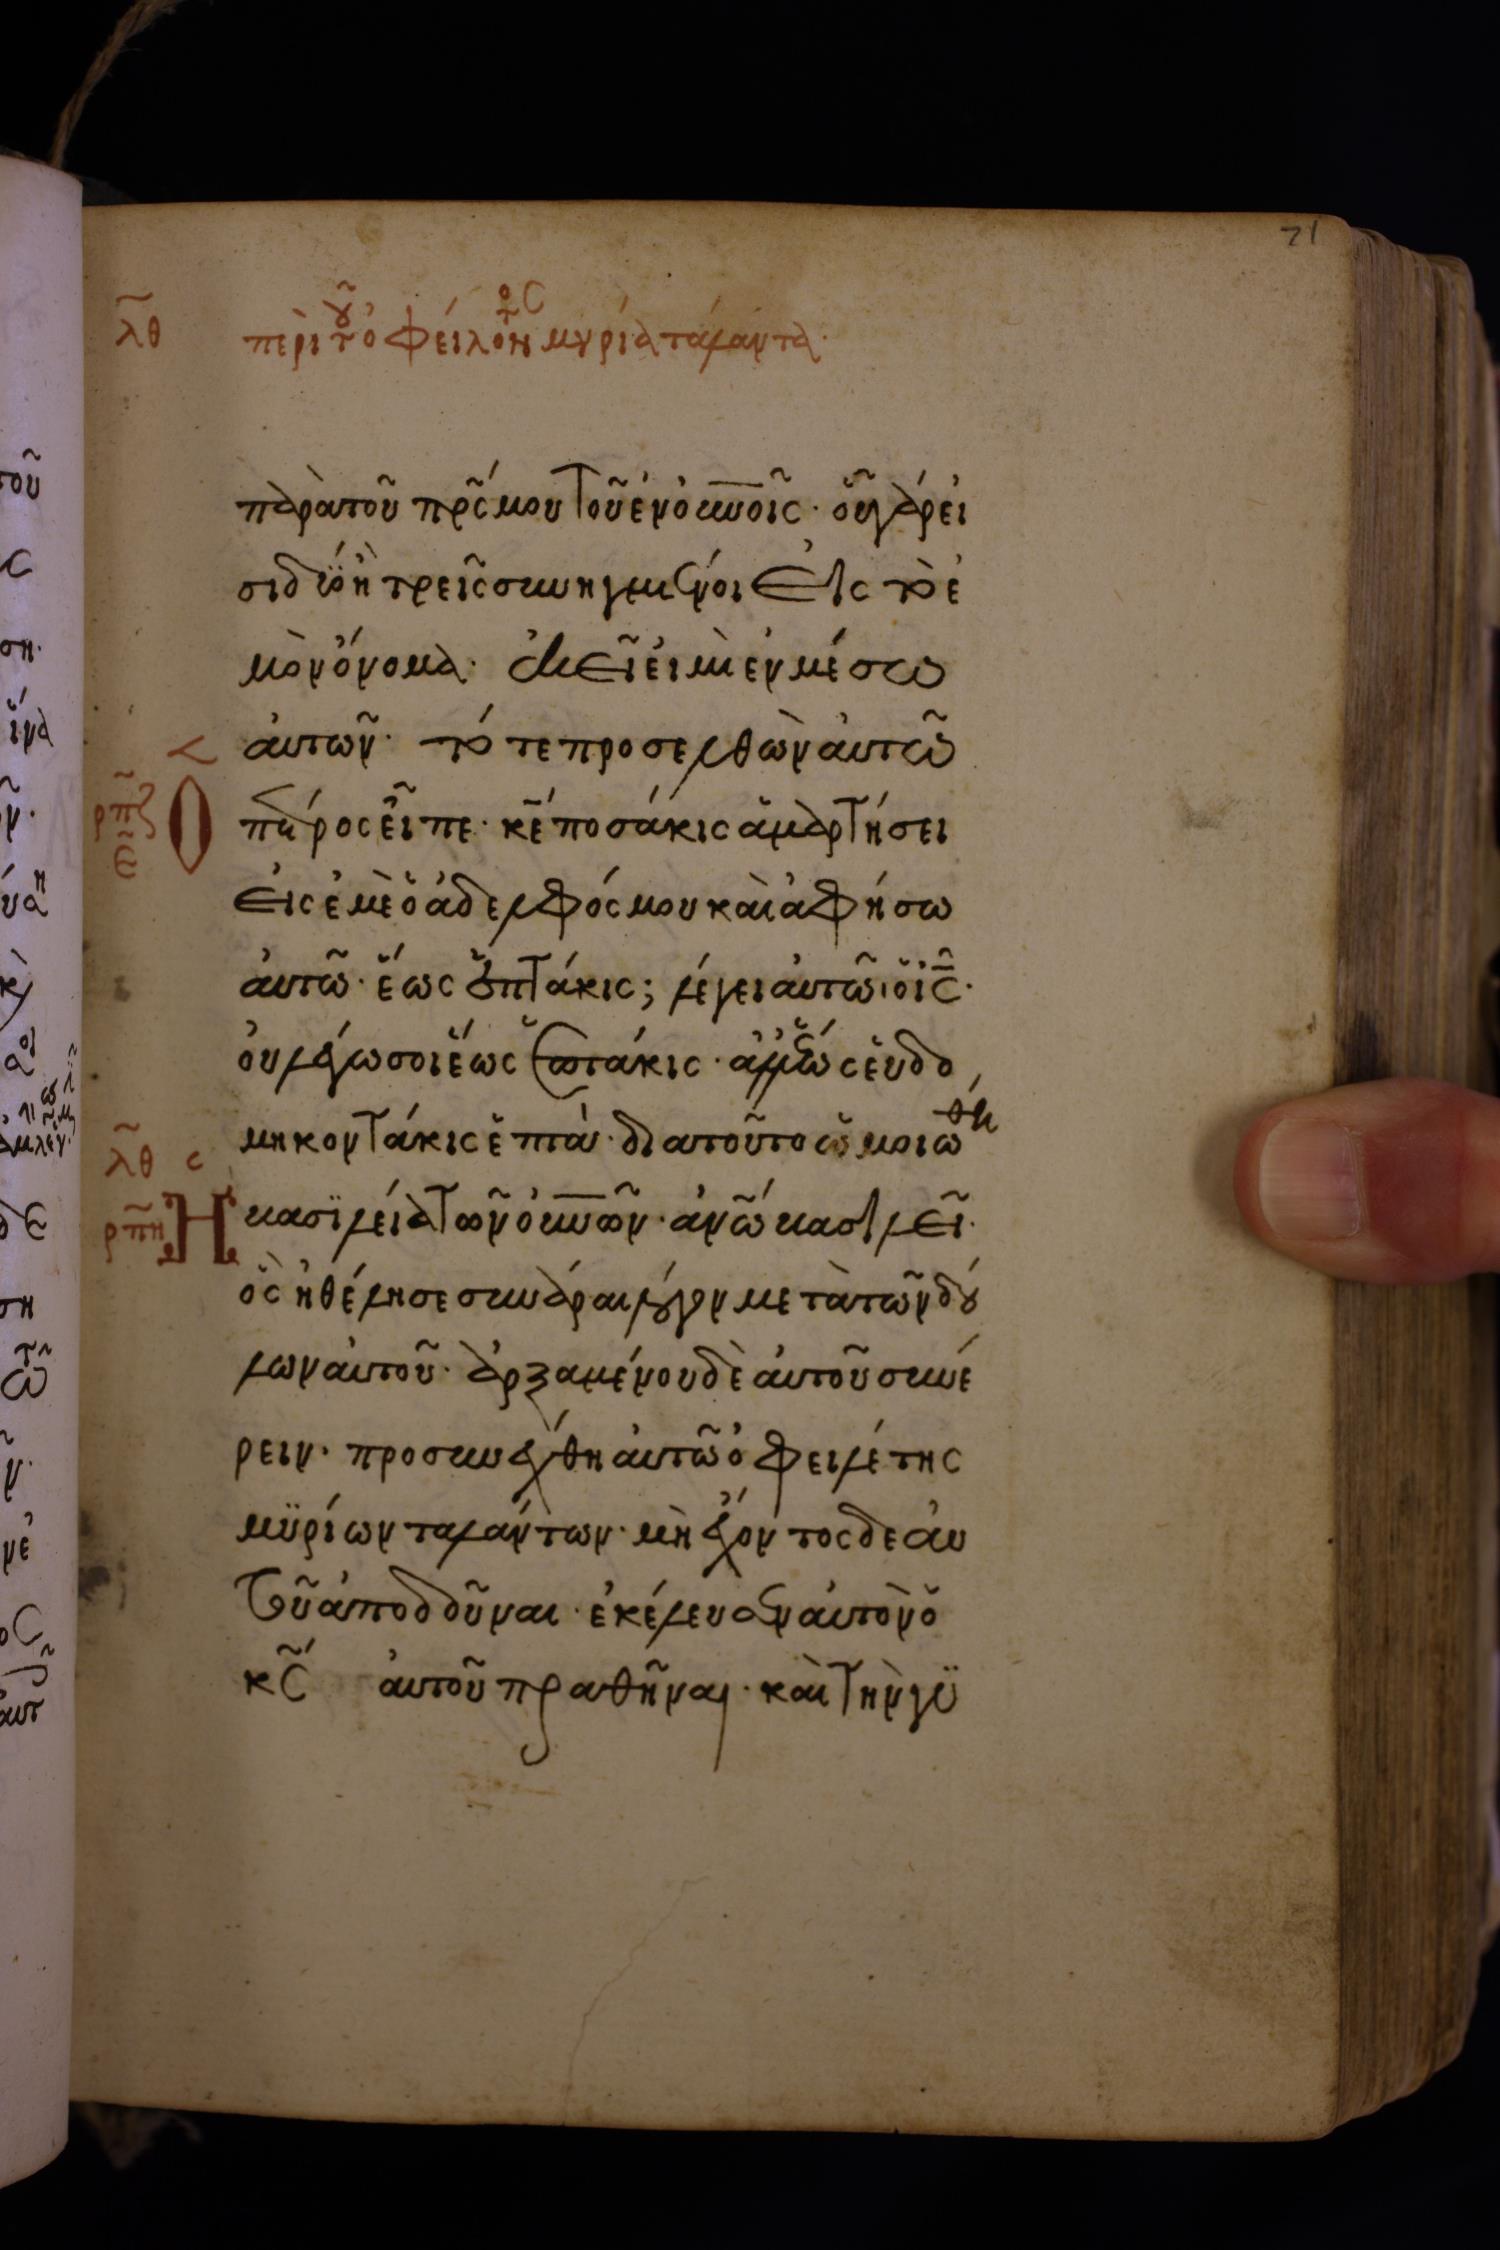 71
λθ περὶ τοῦ ὀφείλοντος μυρία τάλαντα·
παρὰ τοῦ πρς μου τοῦ ἐν οὐνοῖς· οὗ γάρ εἰ
σι δύο ἢ τρεῖς συνηγμένοι εἰς τὸ ἐ
μὸν ὄνομα· ἐκεῖ εἰμὶ ἐν μέσω
αὐτῶν· τότε προσελθὼν αὐτῶ
ρπζ
ε
Ὁ πέτρος εἶπε· κέ ποσάκις ἁμαρτήσει
εἰς ἐμὲ ὁ ἀδελφός μου καὶ ἀφήσω
αὐτῶ· ἕως ἑπτάκις; λέγει αὐτῶ ὁ ις·
οὐ λέγω σοι ἕως ἑπτάκις· ἀλλ ἕως ἑβδο
μηκοντάκις ἑπτά· δια τοῦτο ὡμοιώθη
λθ
ρπη
Ἡ βασιλεία τῶν οὐνῶν· ἀνω βασιλεῖ·
ὃς ἠθέλησε συνάραι λόγον μετὰ τῶν δού
λων αὐτοῦ· ἀρξαμένου δὲ αὐτοῦ συναί
ρειν· προσηνέχθη αὐτῶ ὀφειλέτης
μυρίων ταλάντων· μὴ ἔχοντος δε αὐ
τοῦ ἀποδοῦναι· ἐκέλευσεν αὐτὸν ὁ
κς αὐτοῦ πραθῆναι· καὶ τὴν γυ